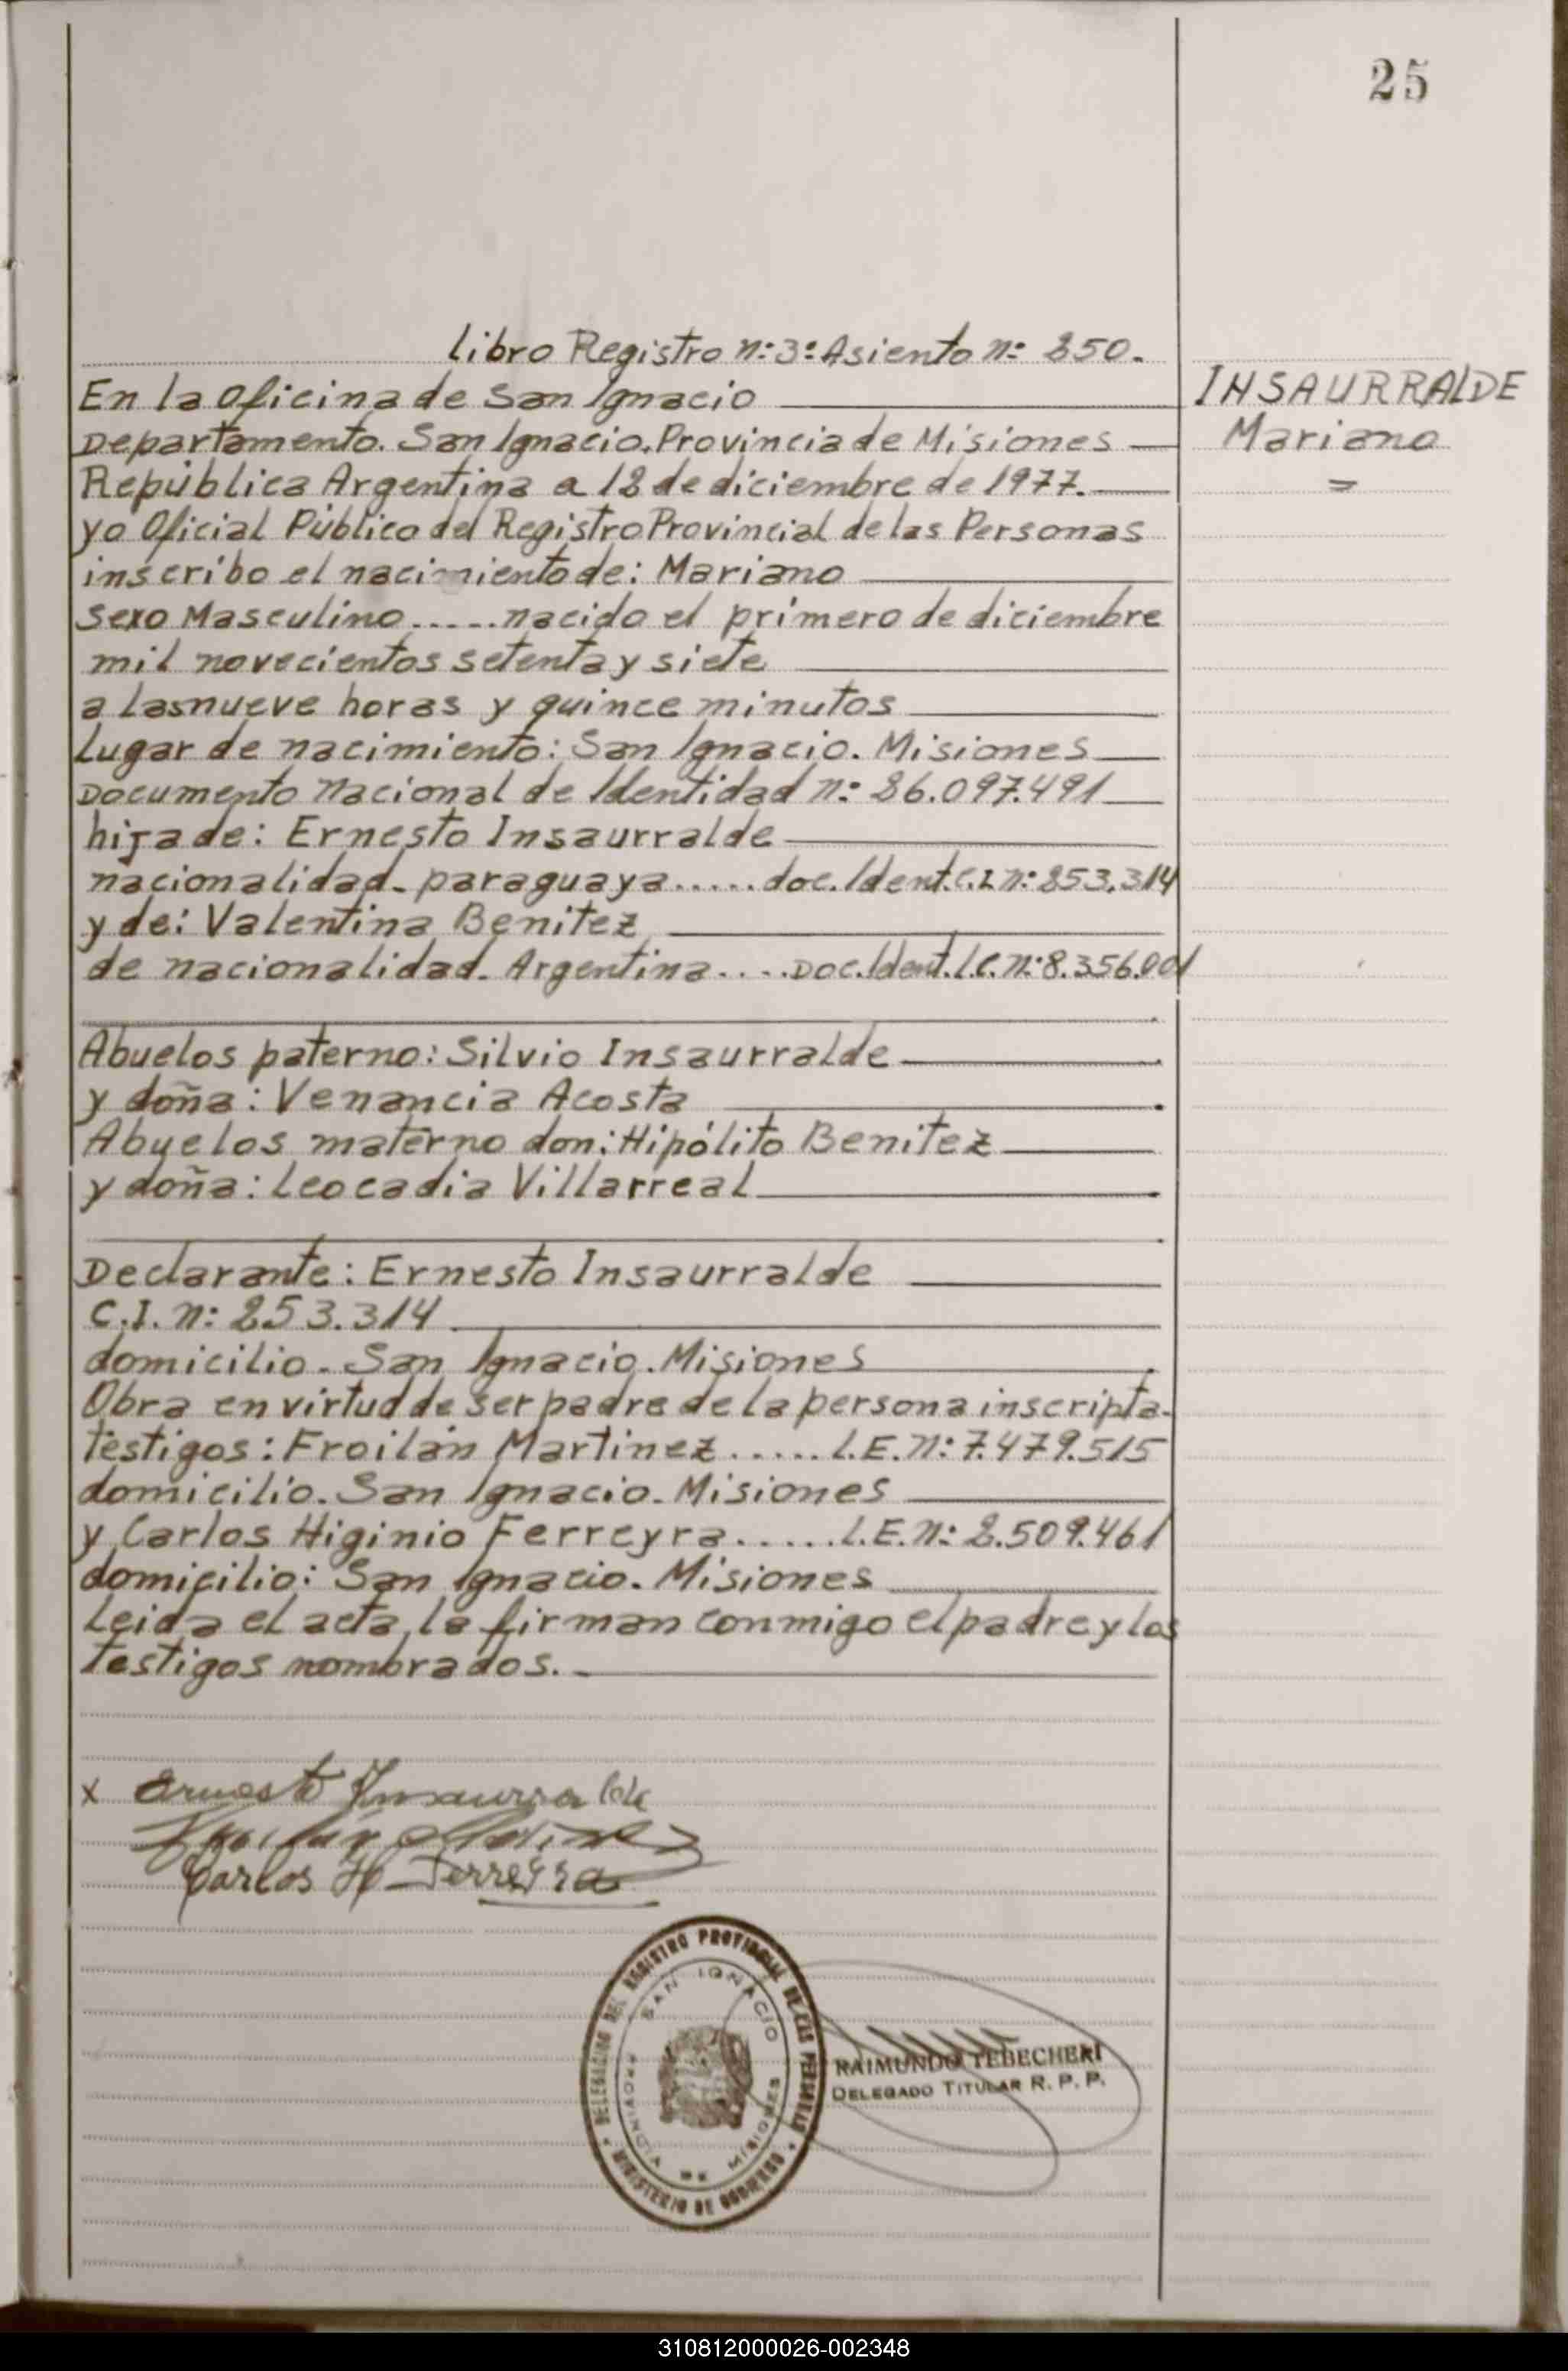 25
libro Registro n: 3º Asiento nº 250.
INSAURRALDE
Mariano
=
En la Oficina de San Ignacio
Departamento. San Ignacio. Provincia de Misiones
República Argentina a 12 de diciembre de 1977.
yo Oficial Público del Registro Provincial de las Personas
inscribo el nacimiento de: Mariano
sexo Masculino.....nacido el primero de diciembre
mil novecientos setenta y siete
a las nueve horas y quince minutos
Lugar de nacimiento: San Ignacio. Misiones
Documento Nacional de Identidad n: 26.097.491
hija de: Ernesto Insaurralde
nacionalidad. paraguaya.....doc. Ident. C.I. n: 253.314
y de: Valentina Benitez
de nacionalidad. Argentina....Doc. Ident. l.c. n: 8.356.001
Abuelos paterno: Silvio Insaurralde
y doña: Venancia Acosta
Abuelos materno don: Hipólito Benitez
y doña: Leocadia Villarreal
Declarante: Ernesto Insaurralde
C.I. n: 253.314
domicilio. San Ignacio. Misiones
Obra en virtud de ser padre de la persona inscripta.
Testigos: Froilán Martinez.....l.E. n: 7.479.515
domicilio. San Ignacio. Misiones
y Carlos Higinio Ferreyra.....l.E. n: 2.509.461
domicilio: San Ignacio. Misiones
Leida el acta, la firman conmigo el padre y los
testigos nombrados.
x Ernesto Insaurralde
Carlos H Ferreyra
DELEGACION DEL REGISTRO PROVINCIAL DE LAS PERSONAS
SAN IGNACIO
PROVINCIA DE MISIONES
MINISTERIO DE GOBIERNO
RAIMUNDO TEBECHERI
DELEGADO TITULAR R. P. P.
310812000026-002348